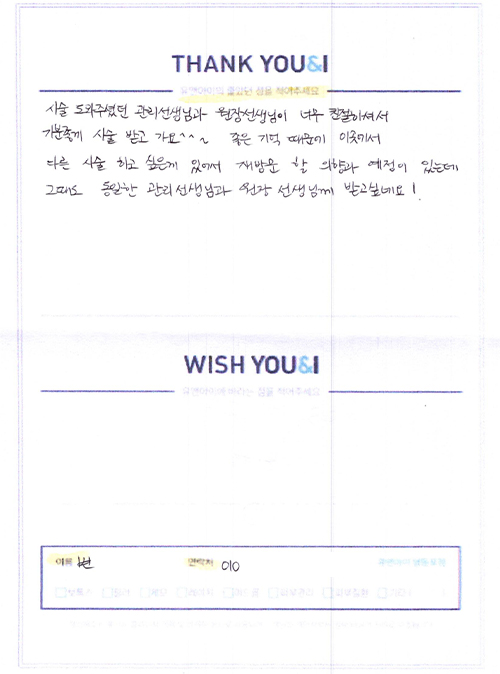 THANK YOU&I
유앤아이의 좋았던 점을 적어주세요
시술 도와주셨던 관리선생님과 원장선생님이 너무 친절하셔서
기분좋게 시술 받고 가요^^~ 좋은 기억 때문에 이곳에서
다른 시술 하고 싶은게 있어서 재방문 할 의향과 예정이 있는데
그때도 동일한 관리선생님과 원장 선생님께 받고싶네요!
WISH YOU&I
유앤아이에 바라는 점을 적어주세요
이름
연락처 010
보톡스 필러 제모 레이저 피부관리 기타